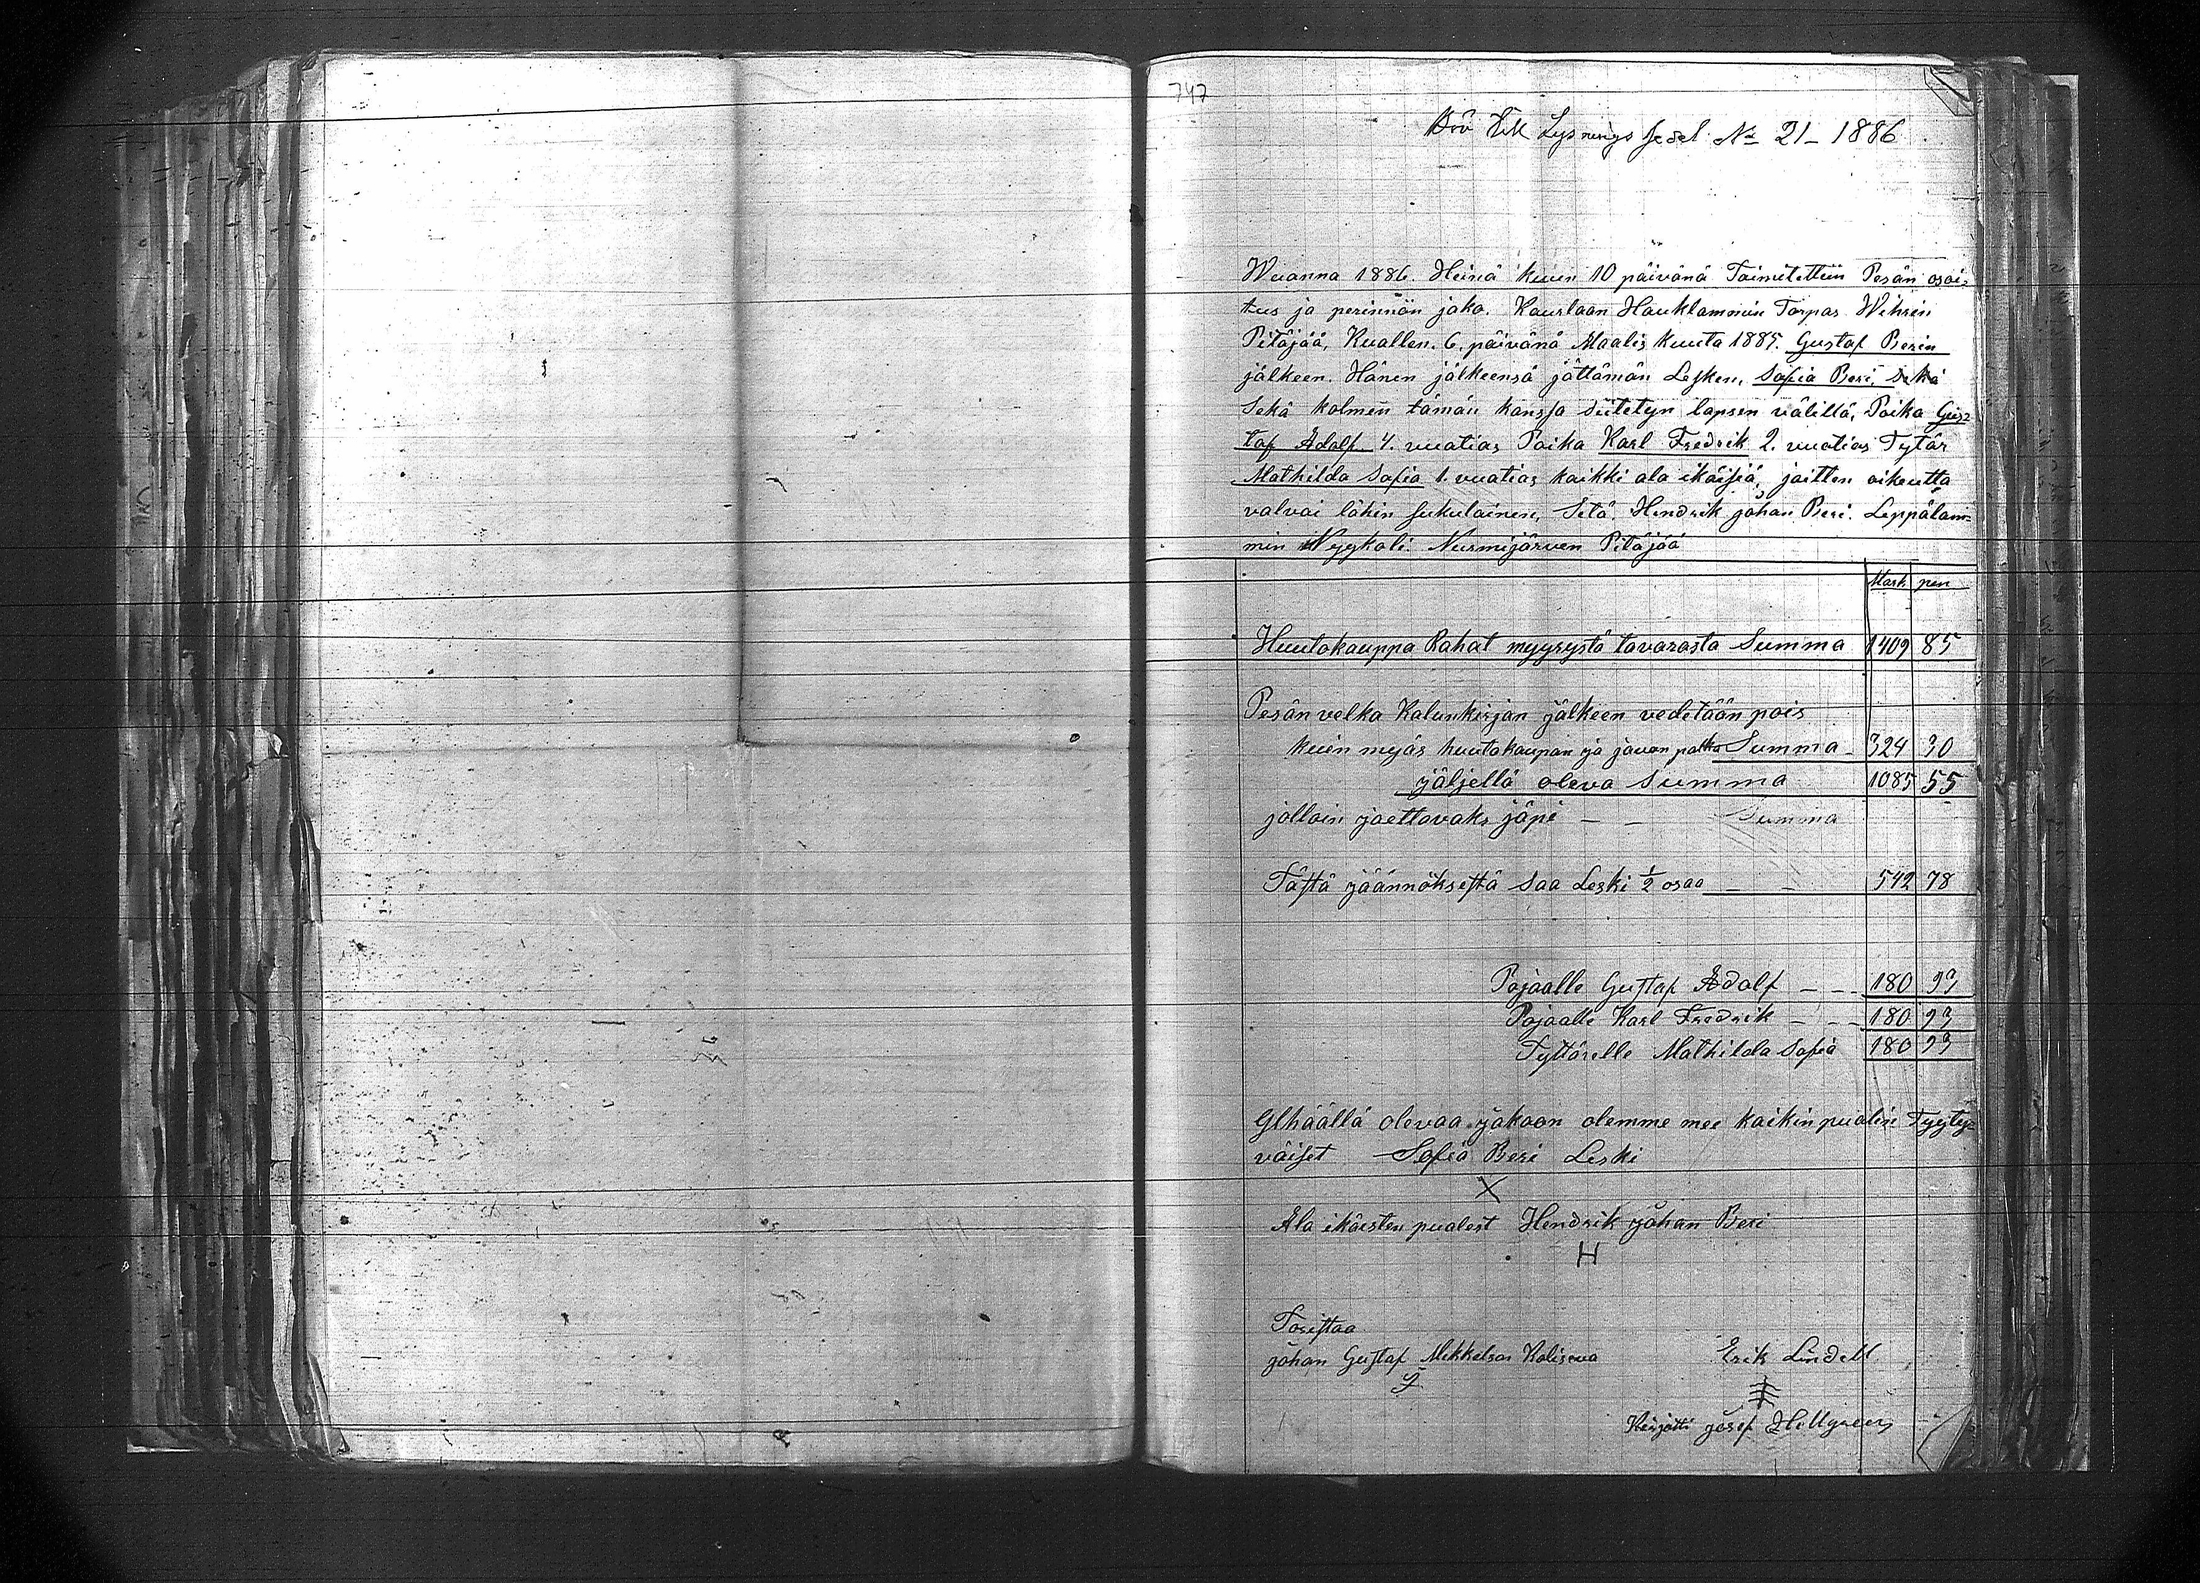 747
Lysnings sedel No 21-1886
Wuanna 1886. Heinä kuun 10 päivänä Toimitettiin Pesän osoi-
tus ja perinnön jako. Kaurlaan Hauklammin Torpas Wihsin
Pitäjää, Kuallen. 6. päivänä Maalis kuuta 1885. Gustaf Berin
jälkeen. Hänen jälkeensä jättämän Lesken, Sofia Beri, sekä
Sekä kolmen tämän kanssa siitetyn lapsen välillä, Poika Gus-
taf Adolf 4. vuatias Poika Karl Fredrik 2. vuatias Tytär
Mathilda Sofia 1. vuatias kaikki ala ikäisiä, joitten oikeutta
valvoi lähin sukulainen, Setä. Hendrik Johan Beri. Leppälam-
min Nyykoli Nurmijärven Pitäjää
Mark pen
Huutokauppa Rahat myyrystä tavarasta Summa 1409 85
Pesän velka Kalunkirjan jälkeen vedetään pois
kuin myäs huutokaupan ja javon palka Summa - 324 30
jäljellä oleva Summa 1085 55
jolloin jaettavaks jäpi - - Summa
Tästä jäännöksestä saa Leski 1/2 osaa - - 542 78
Pojaalle Gustaf Adolf - - 180 93
Pojaalle Karl Fredrik - - - 180 93
Tyttärelle Mathilda Sofia 180 93
Ylhäällä olevaa jakoon olemme mee kaikin pualin Tyyty-
väiset Sofia Beri Leski
X
Ala ikäisten pualest Hendrik Johan Beri
H
Tosistaa
Johan Gustaf Mikkelson Erik Lindell
Kirjotti Josef Hellgreen